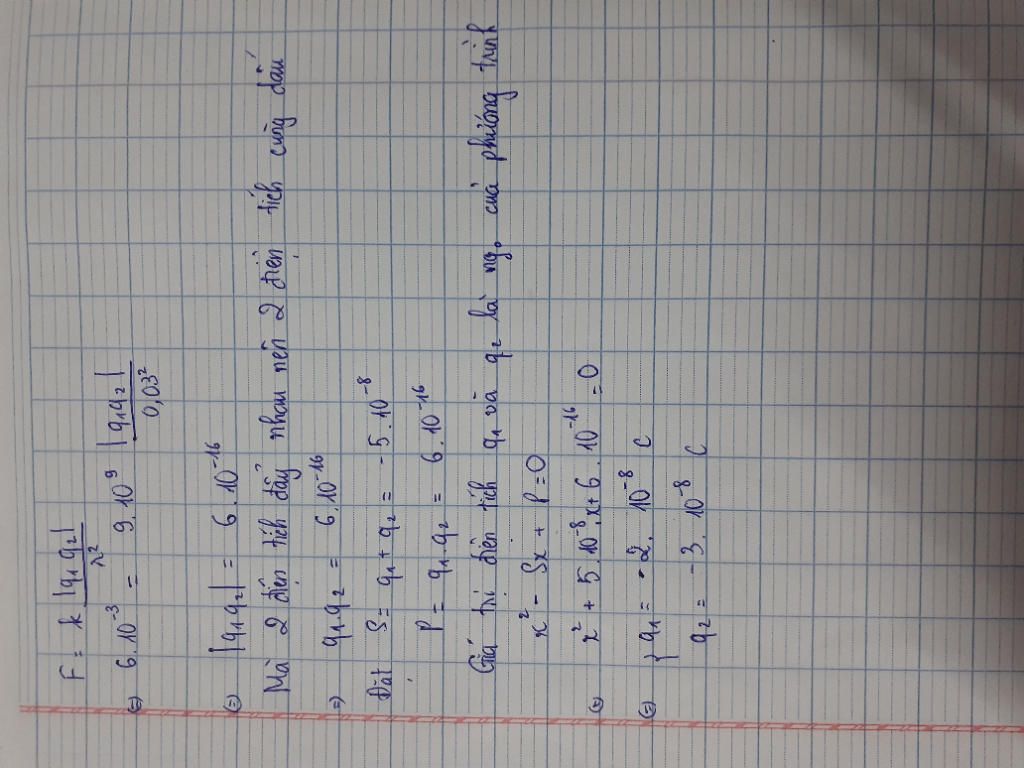 F = k |q₁q₂| / r²
(=) 6.10⁻³ = 9.10⁹ |q₁q₂| / 0,03²
(=) |q₁q₂| = 6.10⁻¹⁶
Mà 2 điện tích đẩy nhau nên 2 điện tích cùng dấu
=) q₁.q₂ = 6.10⁻¹⁶
Đặt S = q₁ + q₂ = -5.10⁻⁸
P = q₁.q₂ = 6.10⁻¹⁶
Giá trị điện tích q₁ và q₂ là ng₀ của phương trình
x² - Sx + P = 0
(=) x² + 5.10⁻⁸.x + 6.10⁻¹⁶ = 0
(=) { q₁ = -2.10⁻⁸ C
q₂ = -3.10⁻⁸ C